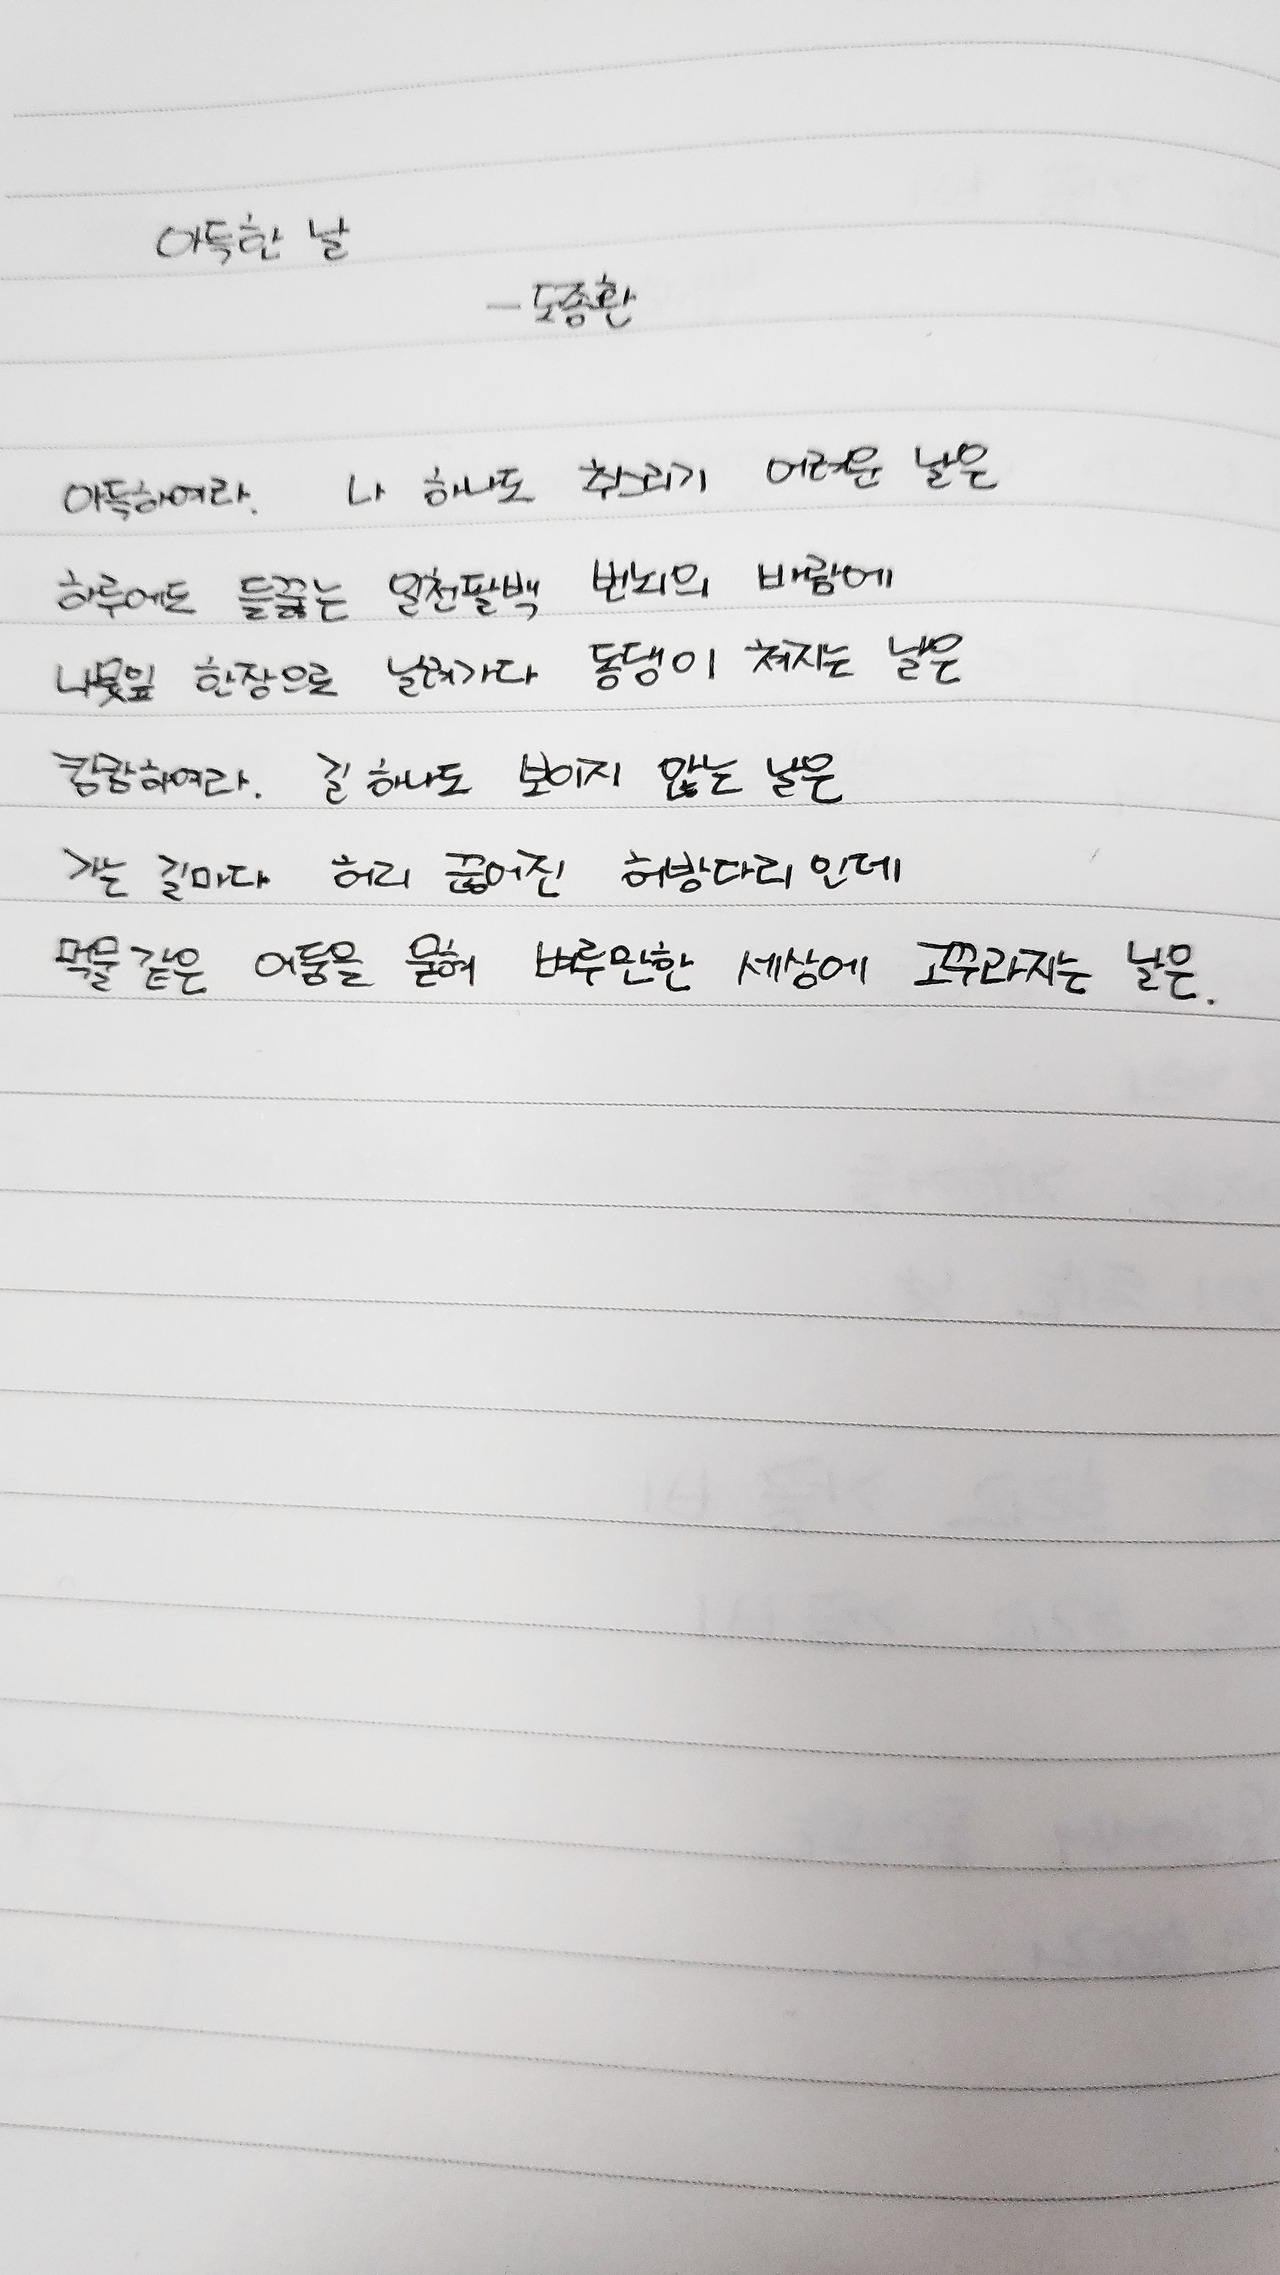 아득한 날
- 도종환
아득하여라. 나 하나도 추스리기 어려운 날은
하루에도 들끓는 일천팔백 번뇌의 바람에
나뭇잎 한장으로 날려가다 동댕이 쳐지는 날은
캄캄하여라. 길 하나도 보이지 않는 날은
가는 길마다 허리 끊어진 허방다리 인데
먹물 같은 어둠을 묻혀 벼루만한 세상에 고꾸라지는 날은.